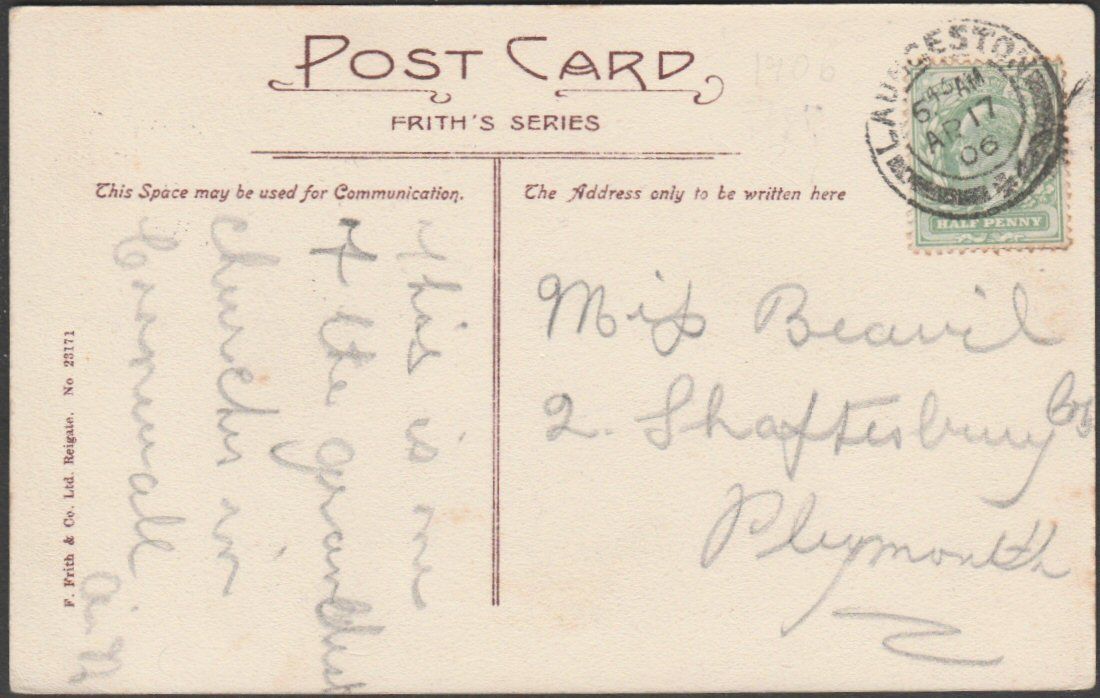 POST CARD
FRITH'S SERIES
1906
This Space may be used for Communication.
The Address only to be written here
LAUNCESTON
6 45 AM
AP 17
06
HALF PENNY
This is one
of the grandest
churches in
Cornwall
Miss Beavil
2. Shaftesbury
Plymouth
F. Frith & Co. Ltd. Reigate. No 23171